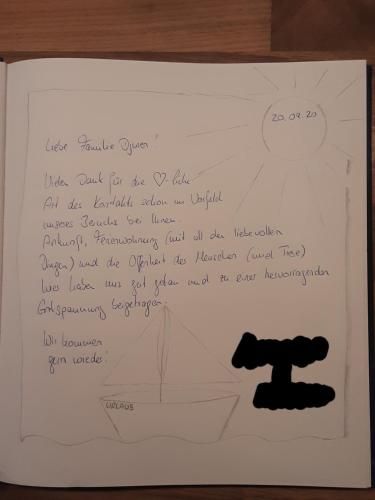 20.09.20
Liebe Familie Djuren!
Vielen Dank für die ♡-liche
Art des Kontakts schon im Vorfeld
unseres Besuchs bei Ihnen.
Ankunft, Ferienwohnung (mit all den liebevollen
Dingen) und die Offenheit des Menschen (und Tiere)
hier haben uns gut getan und zu einer hervorragenden
Entspannung beigetragen.
Wir kommen
gern wieder!
URLAUB